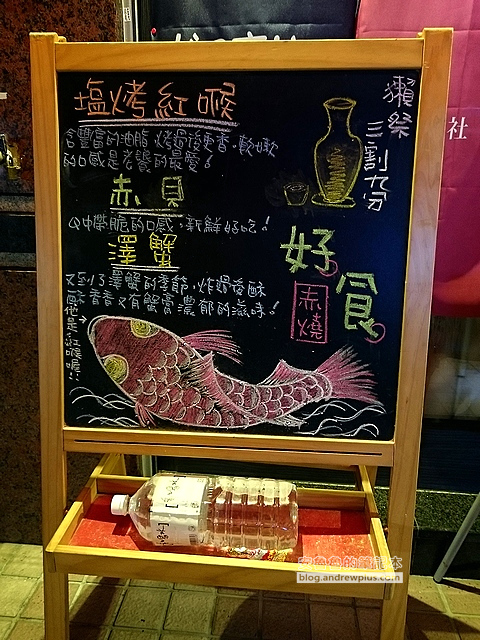 塩烤紅喉
含豐富的油脂,烤過後更香,軟嫩
的口感是老饕的最愛!
赤貝
QQ中帶脆的口感,新鮮好吃!
澤蟹
又到了澤蟹的季節,炸過後酥
酥香香又有蟹膏濃郁的滋味!
他是紅喉喔!!
獺祭
三割九分
好食
赤燒
社
安魚的旅記本
blog.andrewplus.com